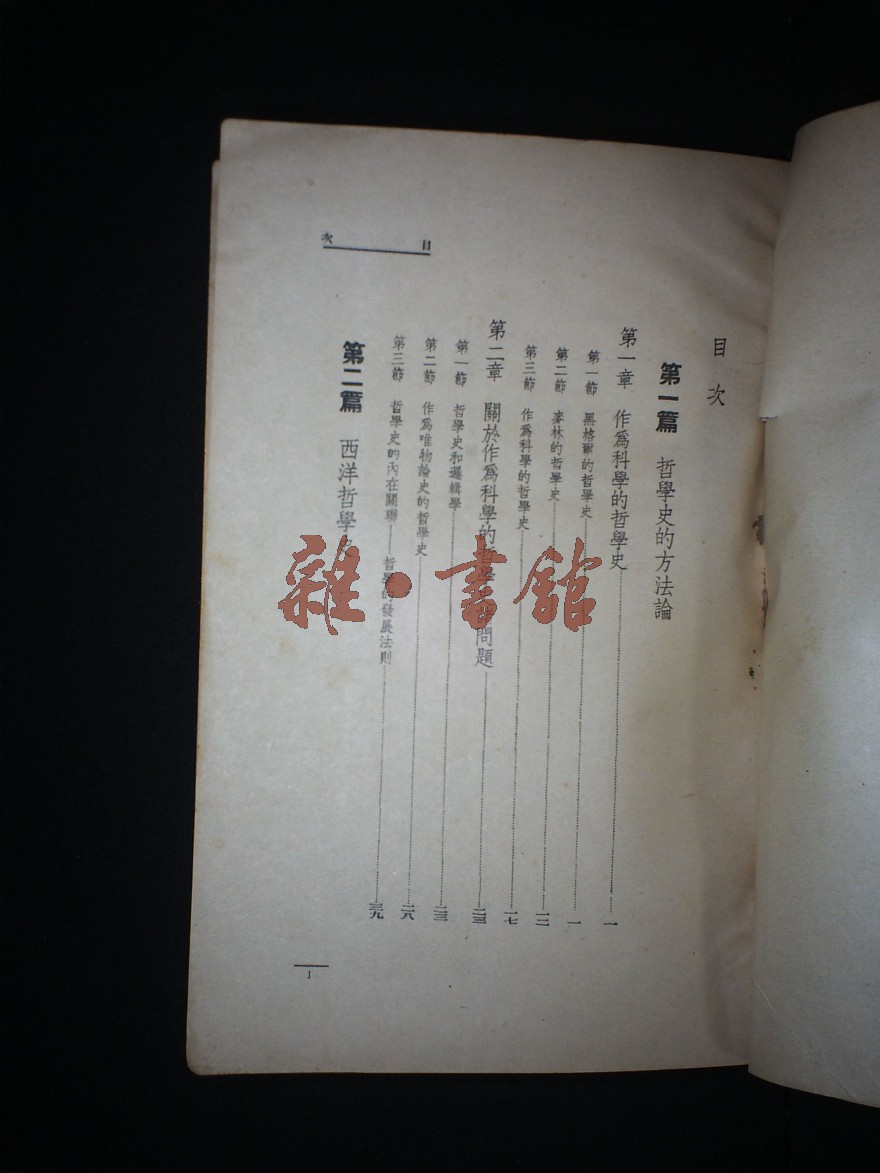 目次
目次
第一篇 哲學史的方法論
第一章 作爲科學的哲學史 一
第一節 黑格爾的哲學史 一
第二節 麥林的哲學史 一二
第三節 作爲科學的哲學史 一七
第二章 關於作爲科學的哲學 問題 二三
第一節 哲學史和邏輯學 二三
第二節 作爲唯物論史的哲學史 二八
第三節 哲學史的內在關聯——哲學的發展法則 三九
第二篇 西洋哲學
1
雜·書館